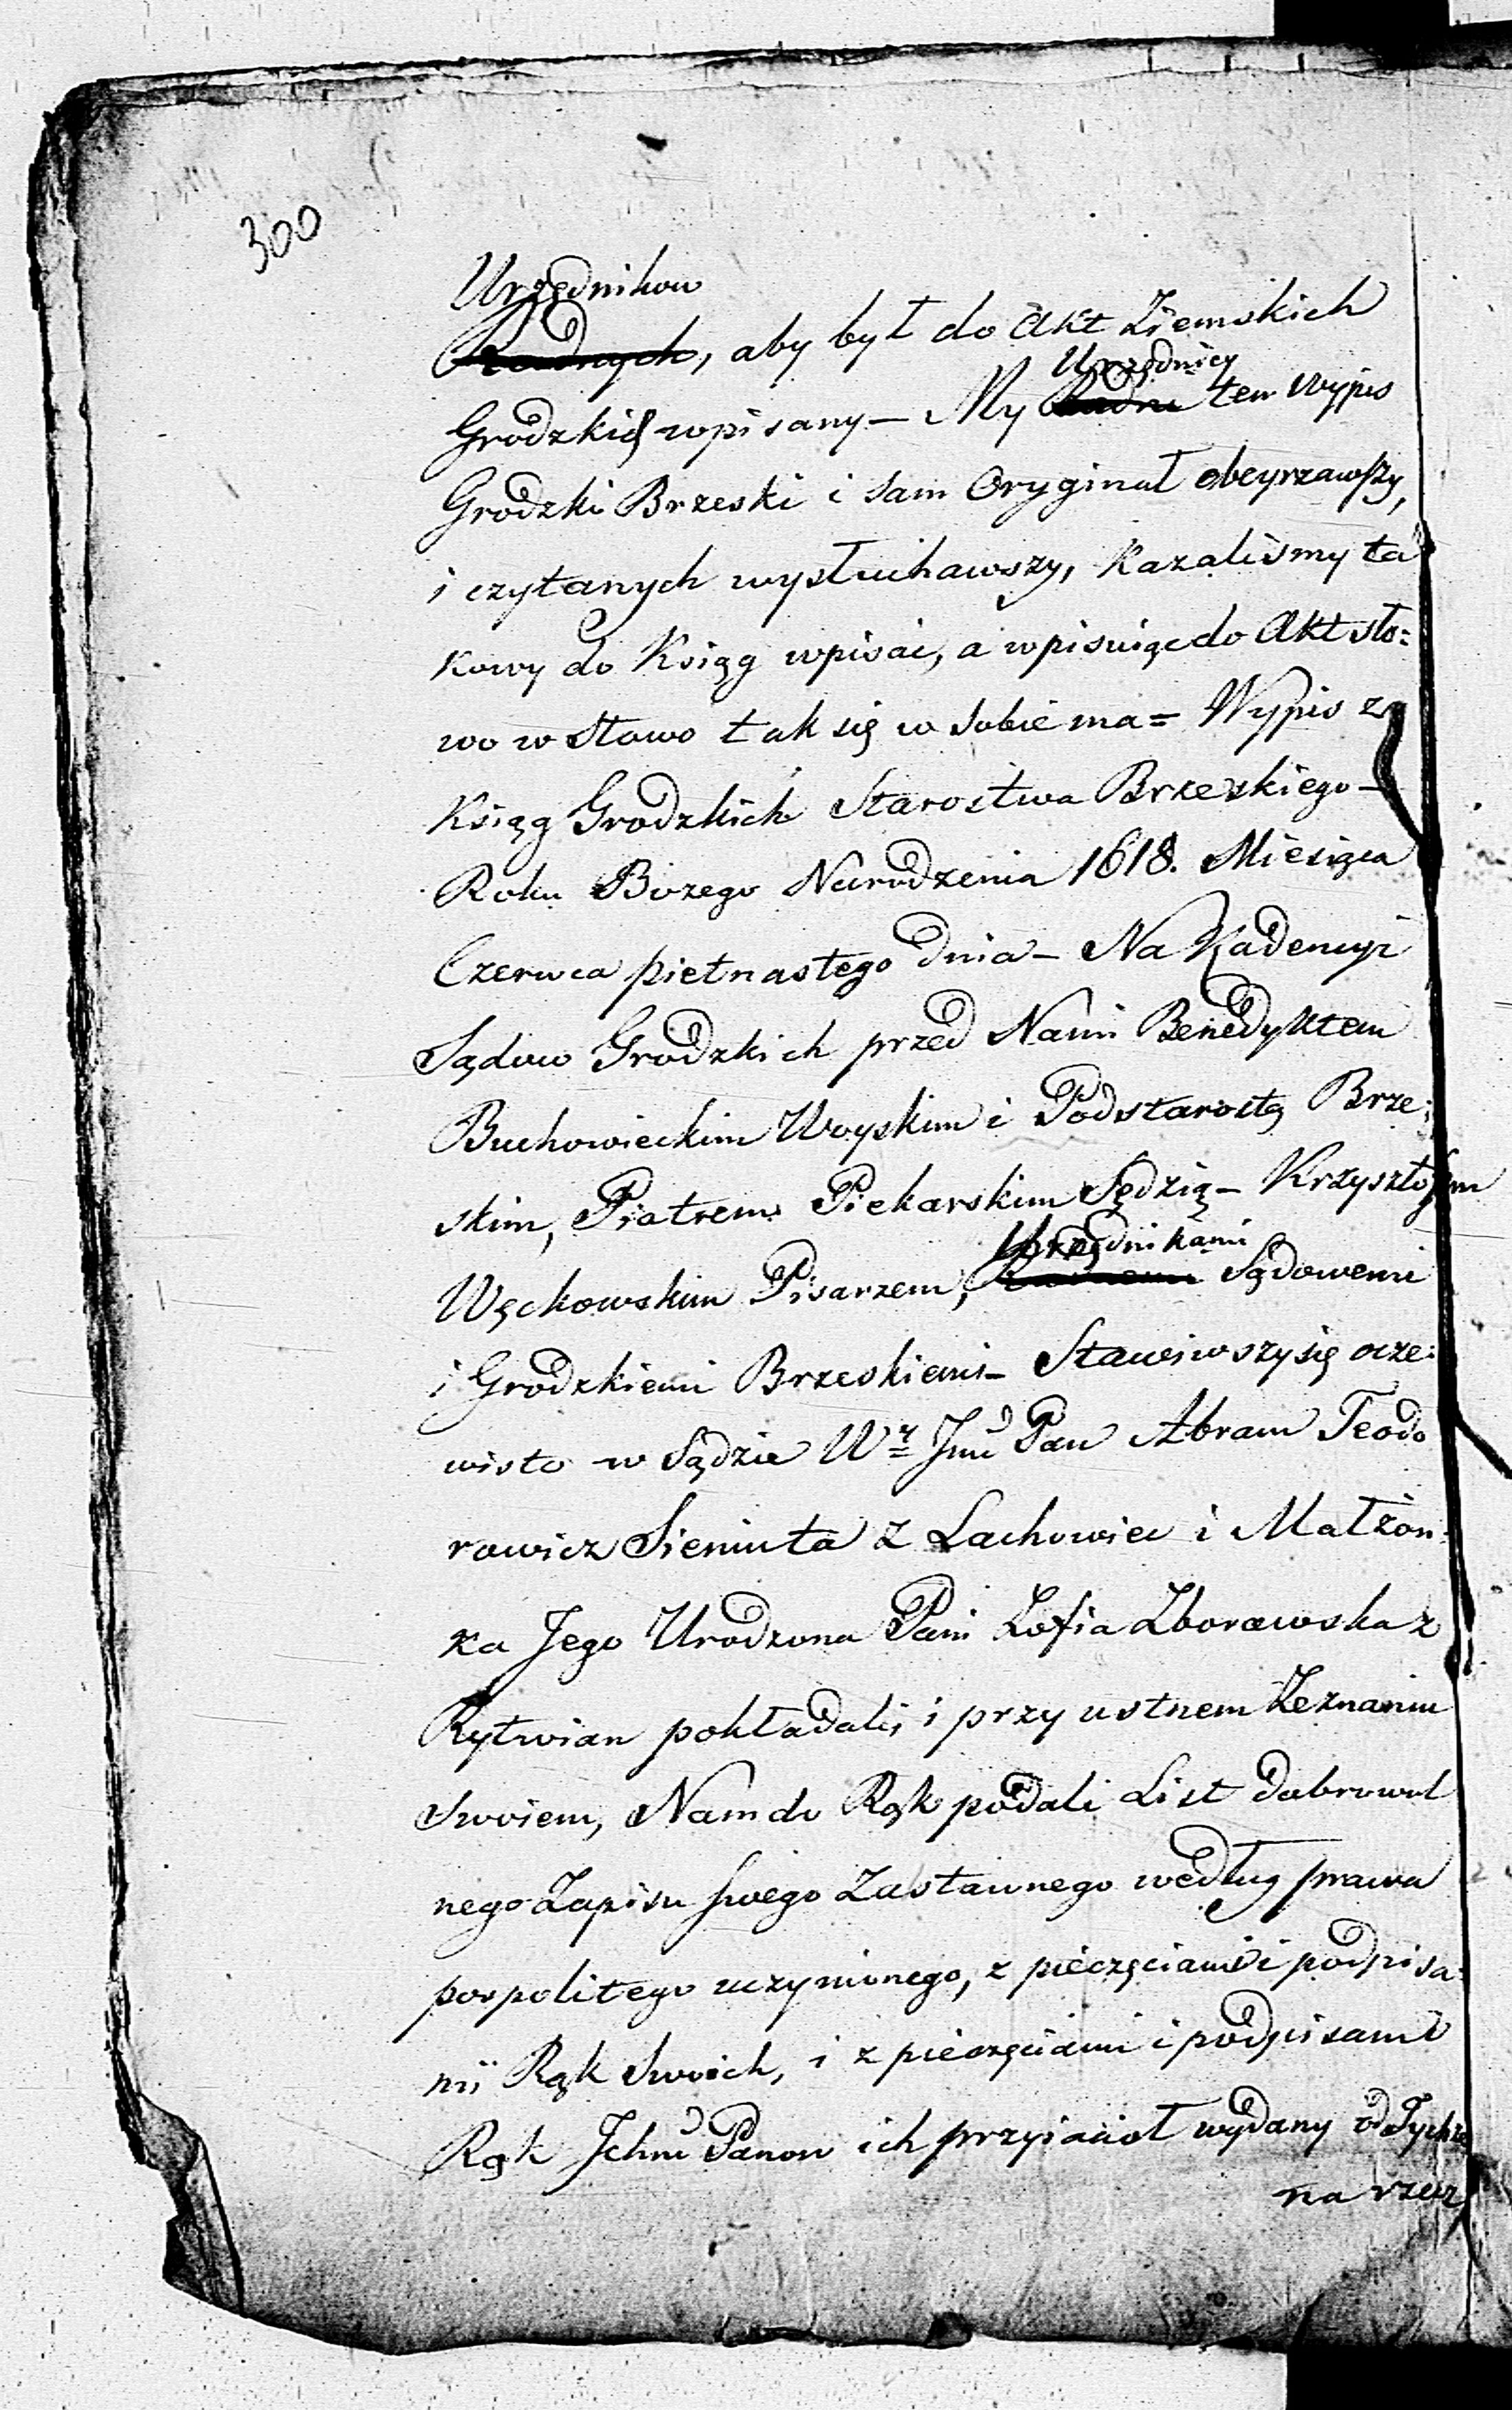 300
Urzędnikow
Radnych, aby był do Akt Ziemskich
Urzędnicy
Grodzkich wpisany – My Radni ten Wypis
Grodzki Brzeski i sam Oryginał obeyrzawszy,
i czytanych wysłuchawszy, Kazaliśmy ta
kowy do Ksiąg wpisać, a wpisuiąc do Akt sło=
wo w słowo tak się w sobie ma = Wypis z
Ksiąg Grodzkich Starostwa Brzeskiego –
Roku Bożego Narodzenia 1618. Miesiąca
Czerwca pietnastego dnia – Na Kadencyi
Sądow Grodzkich przed Nami Benedyktem
Buchowieckim Woyskim i Podstarostą Brze=
skim, Piotrem Piekarskim Sędzią – Krzysztofem
Urzędnikami
Węckowskim Pisarzem, Sądowemi
i Grodzkiemi Brzeskiemi – Stawiwszy się ocze=
wisto w Sądzie Wy Jmć Pan Abram Teodo
rowicz Sieniuta z Lachowiec i Małżon=
ka Jego Urodzona Pani Zofia Zborowska z
Rytwian pokładali, i przy ustnem Zeznaniu
Swoiem, Nam do Rąk podali List dobrowol
nego Zapisu swego Zastawnego według prawa
pospolitego uczynionego, z pieczęciami i podpisa=
mi Rąk Swoich, i z pieczęciami i podpisami
Rąk Jchmć Panow ich przyiaciół wydany od Tychże
na rzecz